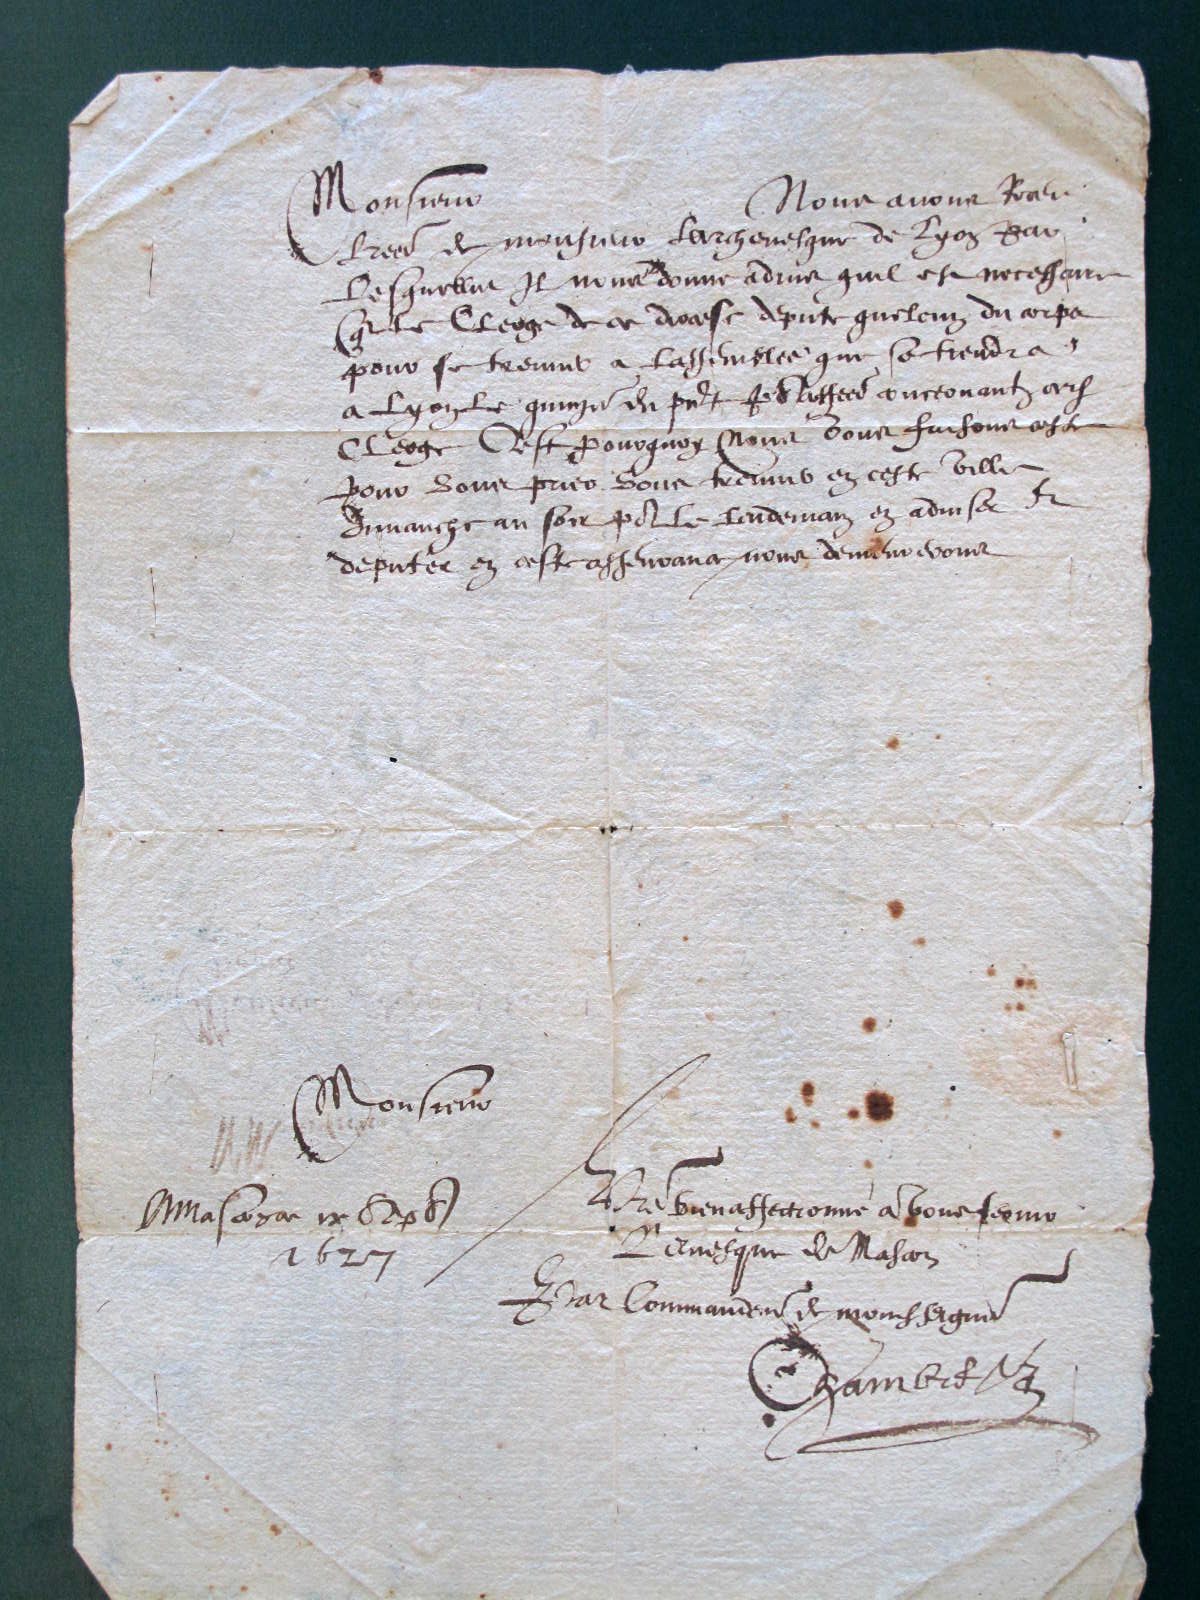 Monsieur Nous avons Receu
Lrees de monsieur Larchevesque de Lyon Par
Lesquelles Il nous donne advis quil est necessaire
que le Clerge de ce diocese depute quelcun du corps
pour se treuver a Lassemblee que se tiendra
a Lyon Le quinze du pnt affaires concernantz
Clerge Cest pourquoy Nous vous faisons ceste
pour vous prier vous treuver en ceste ville
dimanche au soir po Le Lendemain en adviser &
deputer en ceste asseurance nous demeurerons
Monsieur
Vre bien affectionne a vous servir
Levesque de Mascon
A Mascon ce ix Sept
1627
Par Commandemt de mondseigneur